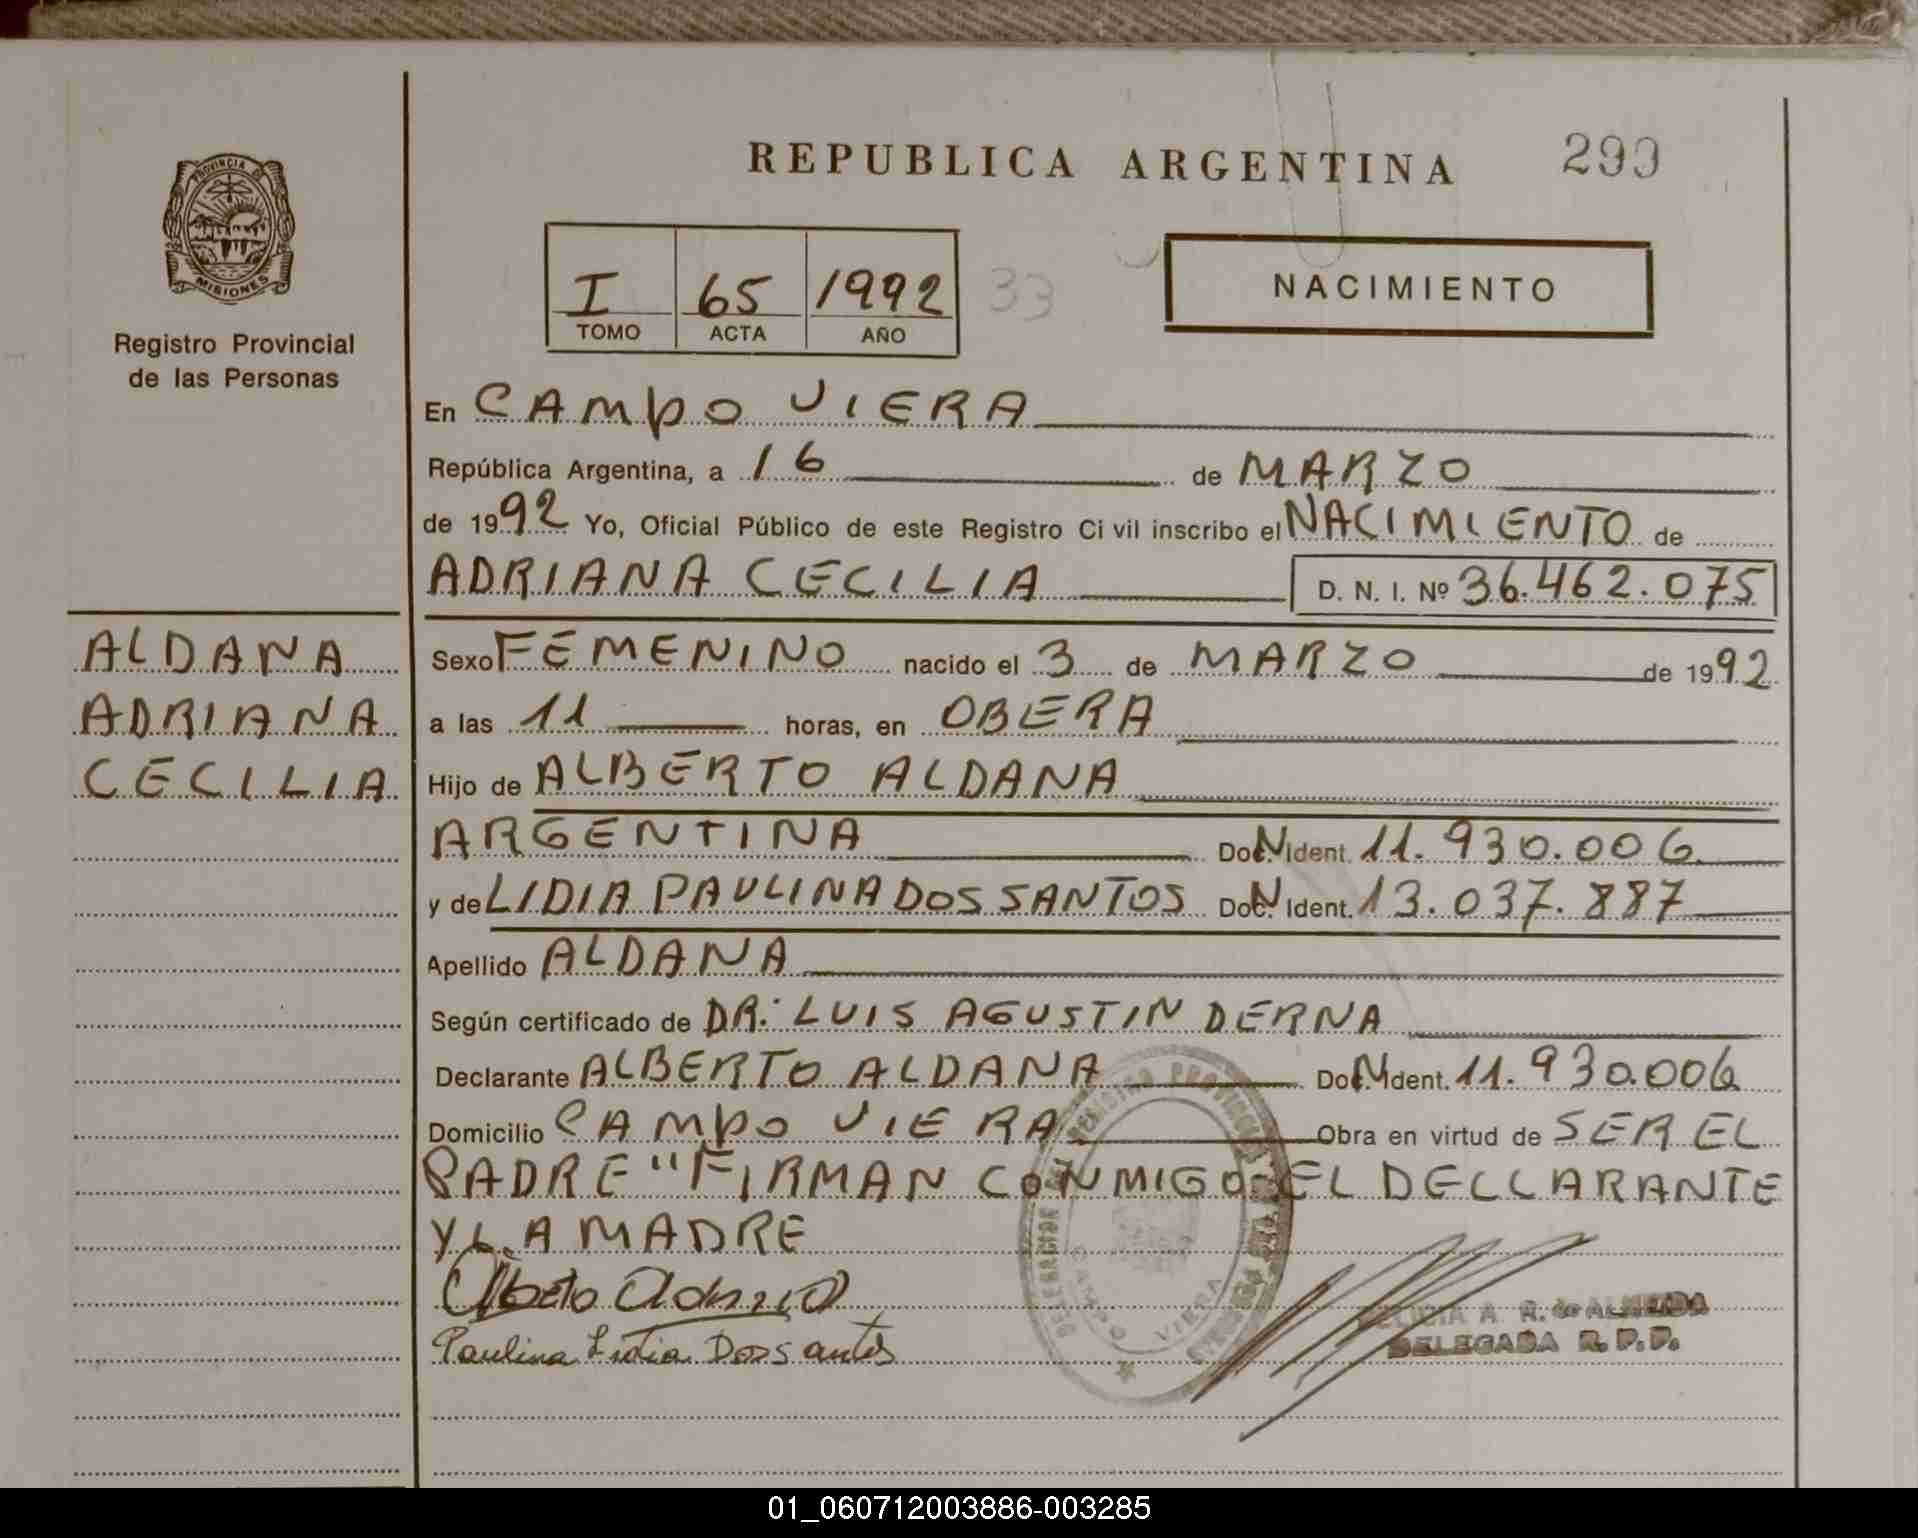 REPUBLICA ARGENTINA
299
PROVINCIA DE
MISIONES
Registro Provincial
de las Personas
I 65 1992
TOMO ACTA AÑO
33
NACIMIENTO
En CAMPO VIERA
República Argentina, a 16 de MARZO
de 1992 Yo, Oficial Público de este Registro Ci vil inscribo el NACIMIENTO de
ADRIANA CECILIA D. N. I. Nº 36.462.075
ALDANA
ADRIANA
CECILIA
Sexo FEMENINO nacido el 3 de MARZO de 1992
a las 11 horas, en OBERA
Hijo de ALBERTO ALDANA
ARGENTINA Doc. N Ident. 11.930.006
y de LIDIA PAULINA DOS SANTOS Doc. N Ident. 13.037.887
Apellido ALDANA
Según certificado de DR: LUIS AGUSTIN DERNA
Declarante ALBERTO ALDANA Doc. N Ident. 11.930.006
Domicilio CAMPO VIERA Obra en virtud de SER EL
PADRE "FIRMAN CONMIGO EL DECLARANTE
Y LA MADRE
Alberto Aldana
Paulina Lidia Dos santos
CAMPO VIERA
A. R. de ALMEIDA
DELEGADA R. P. P.
01_060712003886-003285